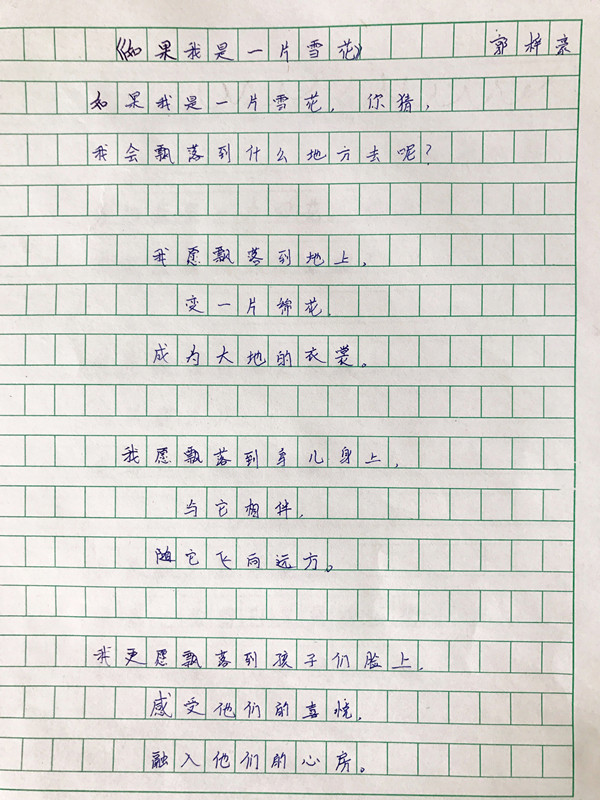 《如果我是一片雪花》 郭梓豪
如果我是一片雪花，你猜，
我会飘落到什么地方去呢？
我愿飘落到地上，
变一片棉花，
成为大地的衣裳。
我愿飘落到鸟儿身上，
与它相伴，
随它飞向远方。
我更愿飘落到孩子们脸上，
感受他们的喜悦，
融入他们的心房。